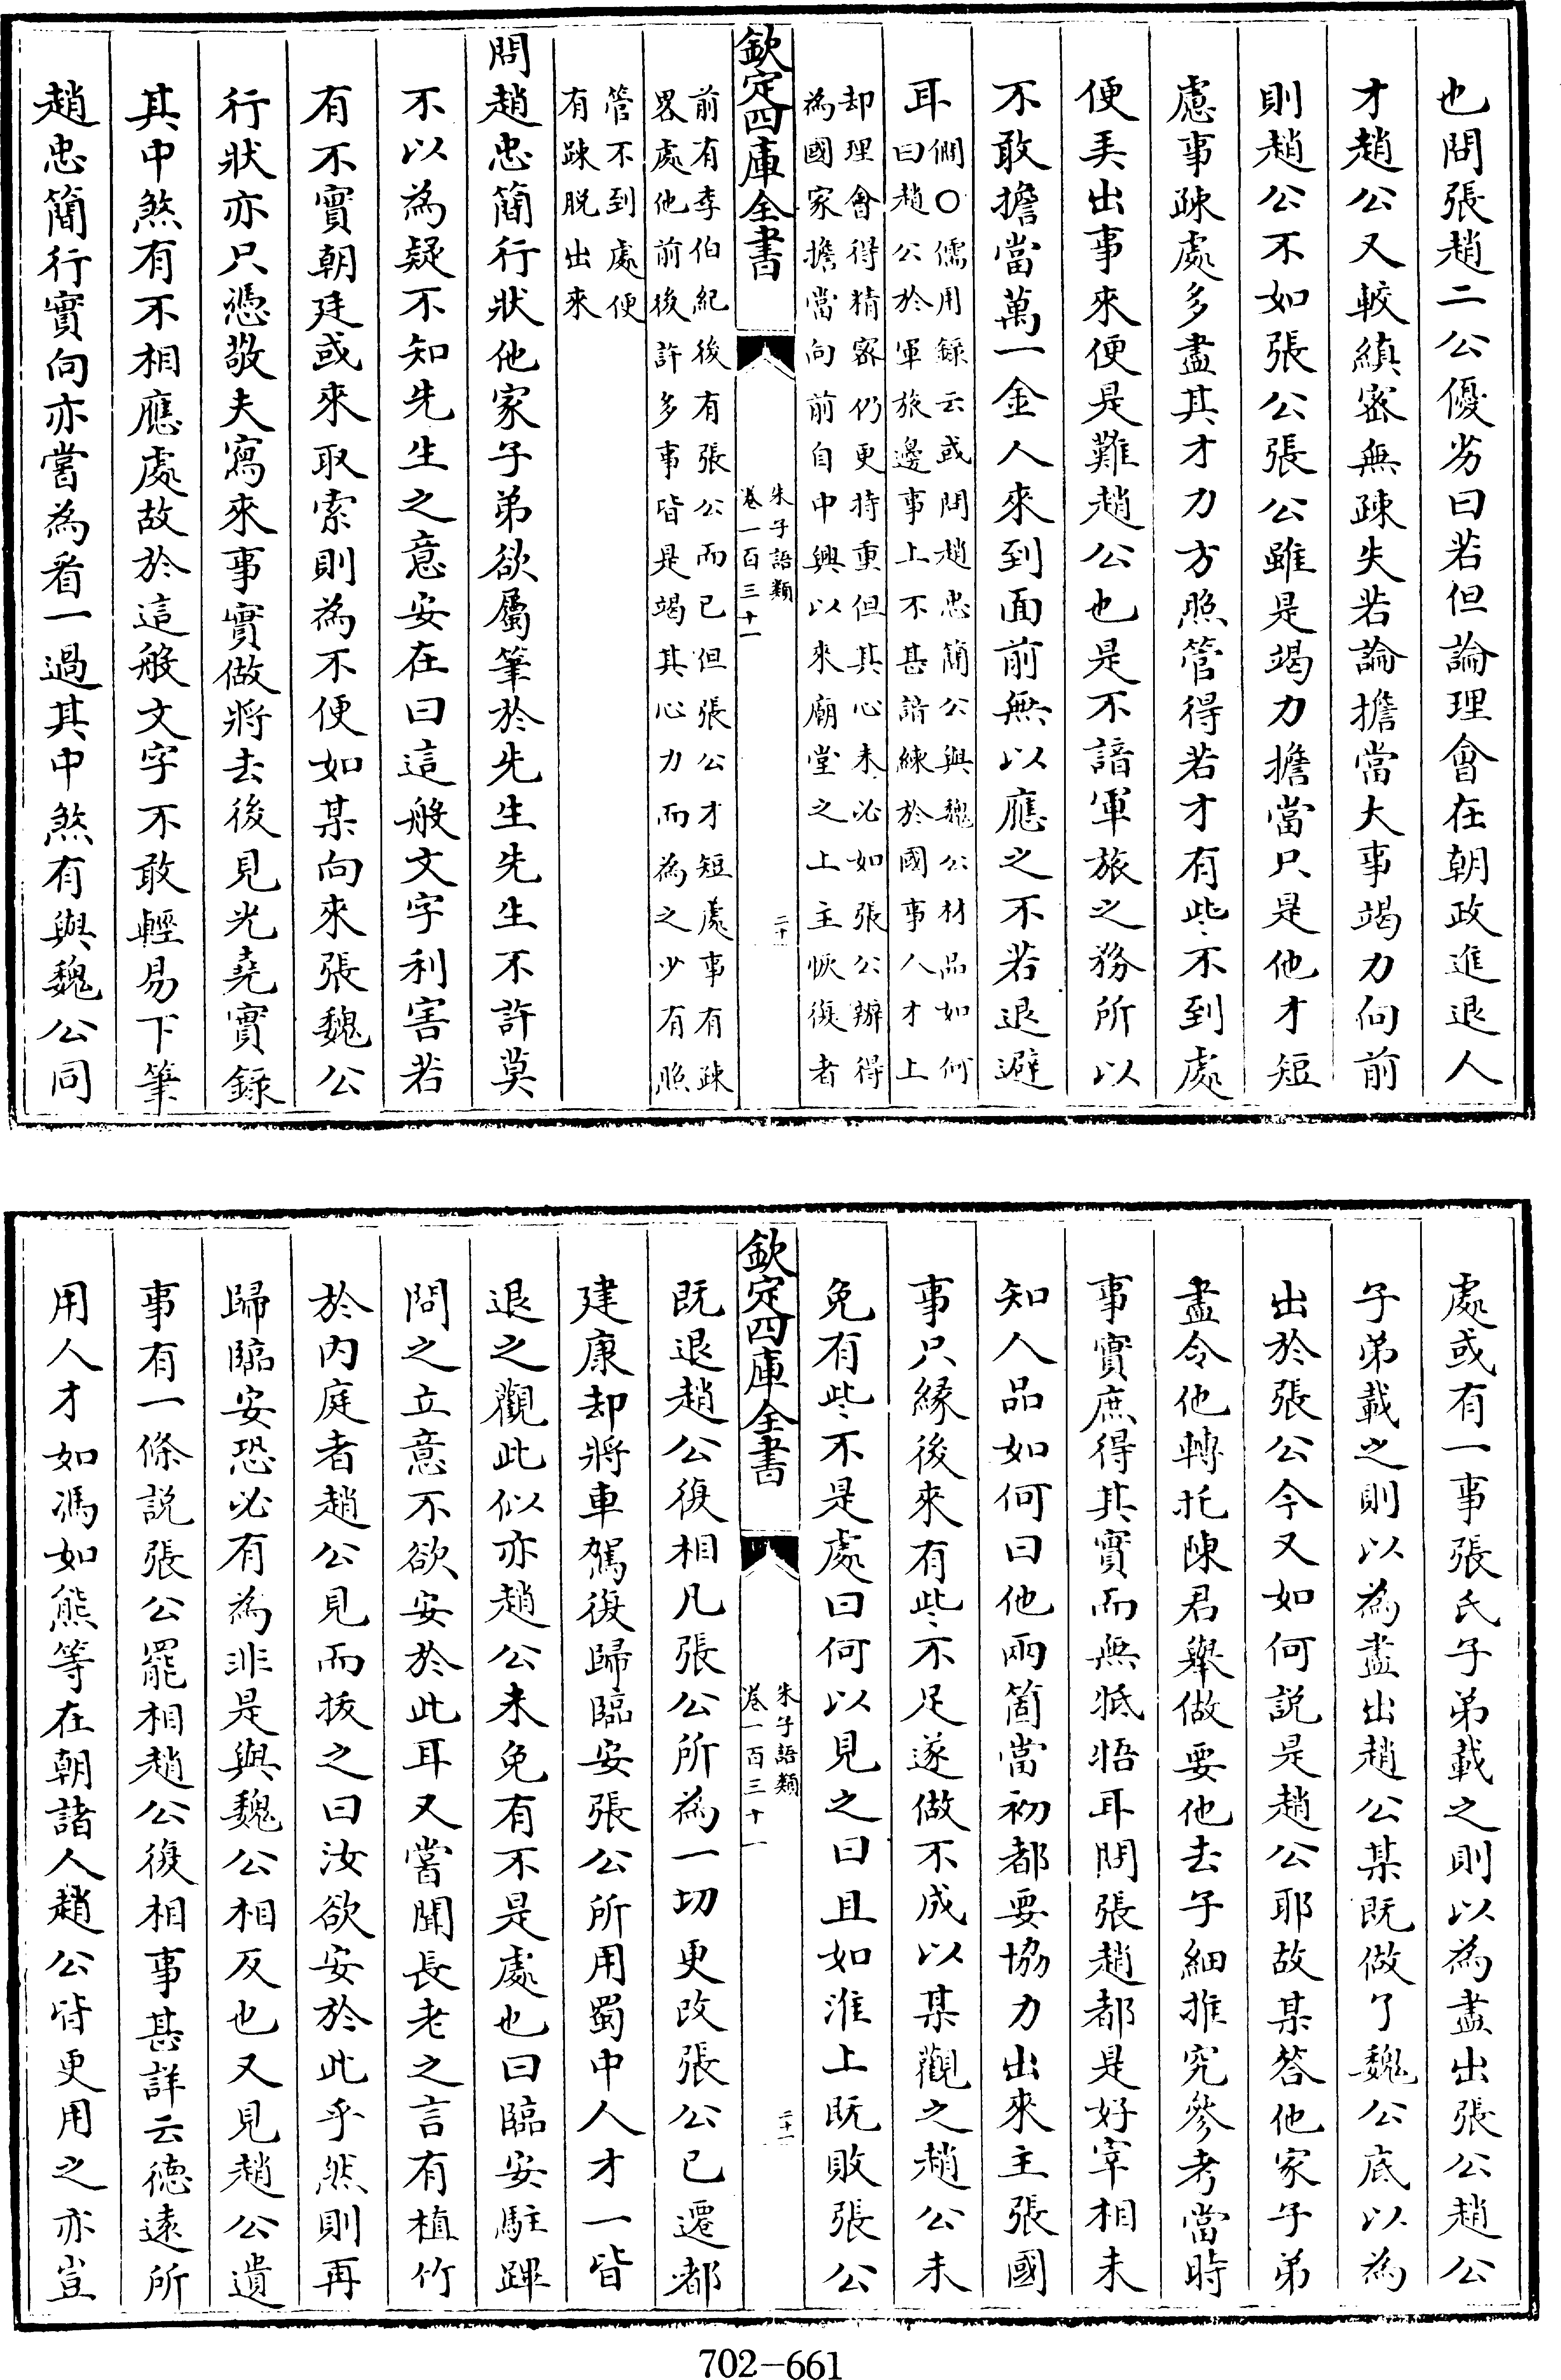 也問張趙二公優劣曰若但論理會在朝政進退人
才趙公又較縝宻無疎失若論擔當大事竭力向前
則趙公不如張公張公雖是竭力擔當只是他才短
慮事疎處多盡其才力方照管得若才有些不到處
便弄出事來便是難趙公也是不諳軍旅之務所以
不敢擔當萬一金人來到面前無以應之不若退避
耳
僴○儒用録云或問趙忠簡公與魏公材品如何
曰趙公於軍旅邊事上不甚諳練於國事人才上
却理會得精宻仍更持重但其心未必如張公辦得
為國家擔當向前自中興以來廟堂之上主恢復者
欽定四庫全書
朱子語類
卷一百三十一
二十
前有李伯紀後有張公而已但張公才短處事有疎
畧處他前後許多事皆是竭其心力而為之少有照
管不到處便
有疎脱出來
問趙忠簡行狀他家子弟欲屬筆於先生先生不許莫
不以為疑不知先生之意安在曰這般文字利害若
有不實朝廷或來取索則為不便如某向來張魏公
行狀亦只憑敬夫寫來事實做將去後見光堯實錄
其中煞有不相應處故於這般文字不敢輕易下筆
趙忠簡行實向亦嘗為看一過其中煞有與魏公同
處或有一事張氏子弟載之則以為盡出張公趙公
子弟載之則以為盡出趙公某既做了魏公底以為
出於張公今又如何説是趙公耶故某答他家子弟
盡令他轉托陳君舉做要他去子細推究參考當時
事實庶得其實而無牴牾耳問張趙都是好宰相未
知人品如何曰他兩箇當初都要協力出來主張國
事只縁後來有些不足遂做不成以某觀之趙公未
免有些不是處曰何以見之曰且如淮上既敗張公
欽定四庫全書
朱子語類
卷一百三十一
二十一
既退趙公復相凡張公所為一切更改張公已遷都
建康却將車駕復歸臨安張公所用蜀中人才一皆
退之觀此似亦趙公未免有不是處也曰臨安駐蹕
問之立意不欲安於此耳又嘗聞長老之言有植竹
於内庭者趙公見而拔之曰汝欲安於此乎然則再
歸臨安恐必有為非是與魏公相反也又見趙公遺
事有一條説張公罷相趙公復相事甚詳云德遠所
用人才如馮如熊等在朝諸人趙公皆更用之亦豈
702-661